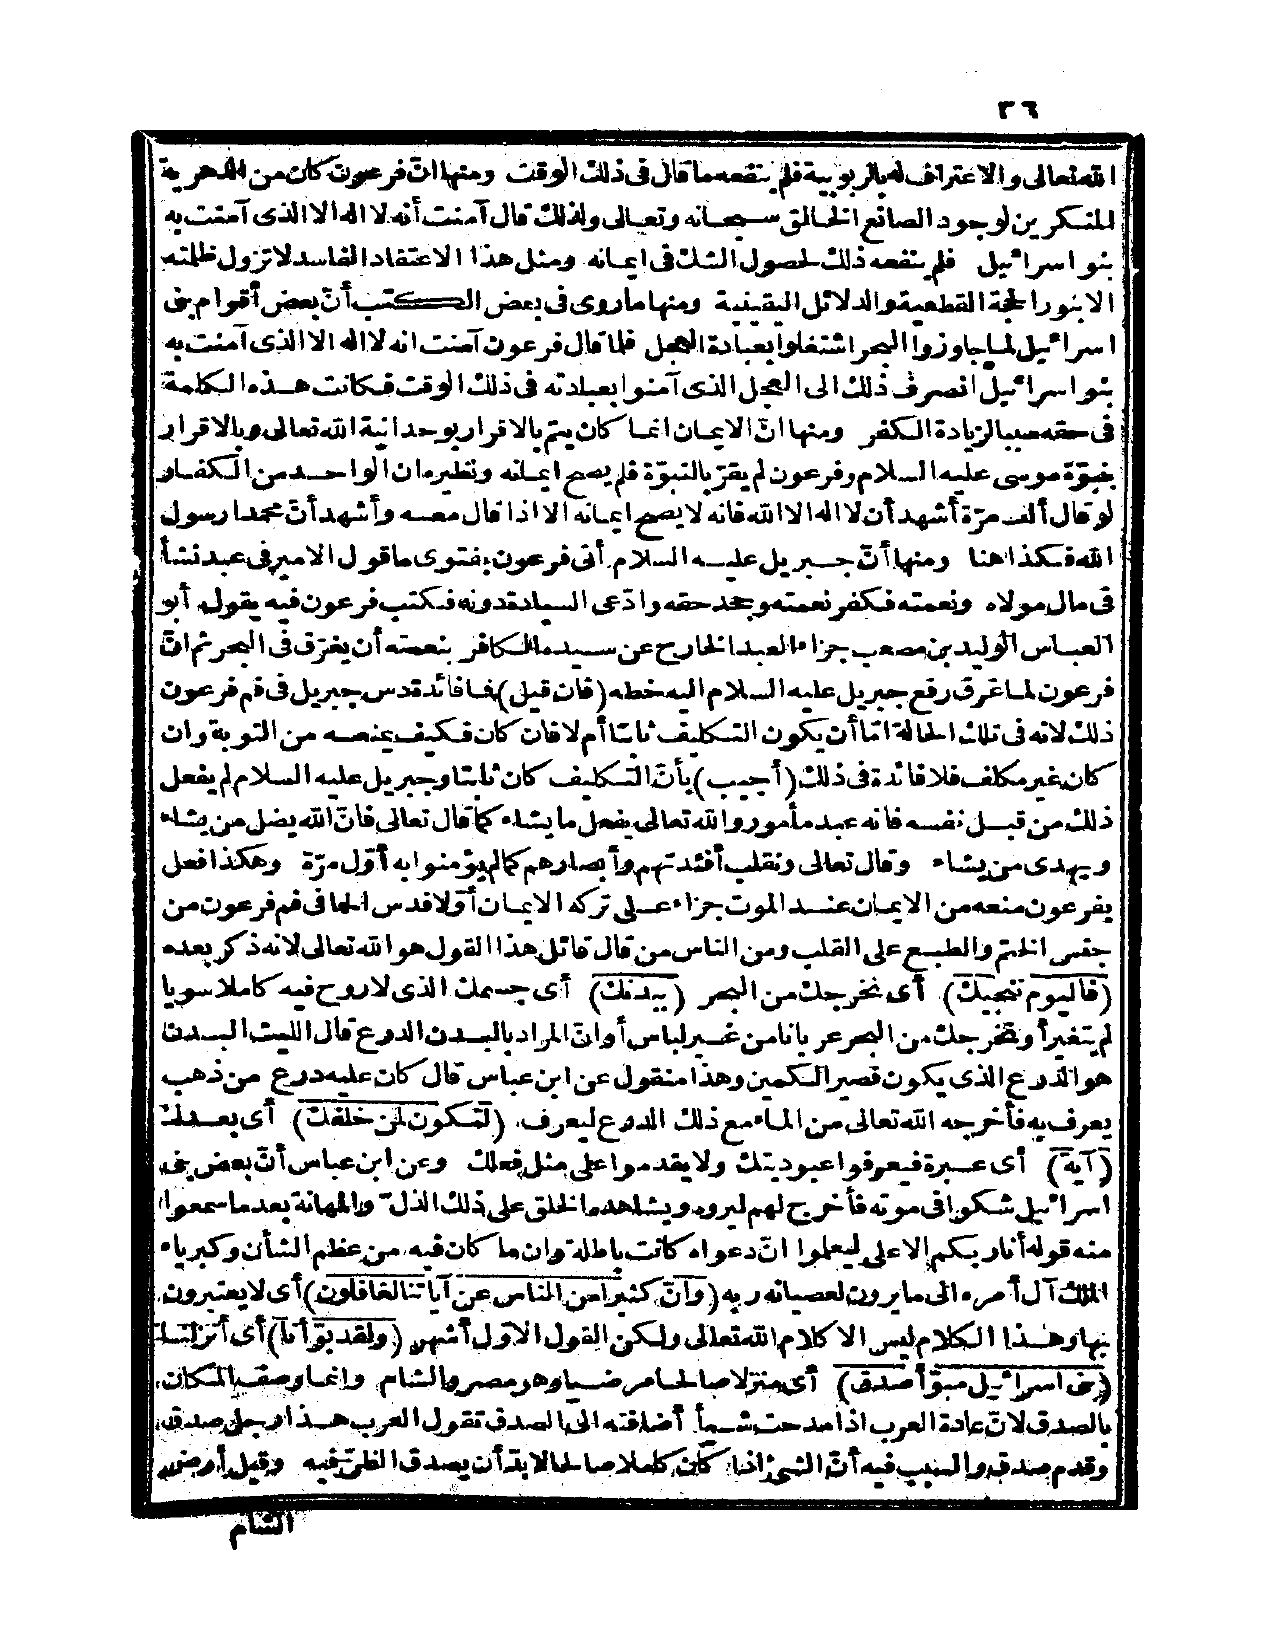 ٣٦
الله تعالى والاعتراف له بالربوبية فلم ينفعه ما قال فى ذلك الوقت ومنها انّ فرعون كان من الدهرية
المنكرين لوجود الصانع الخالق سبحانه وتعالى ولذلك قال آمنت أنه لا اله الا الذى آمنت به
بنو اسرائيل فلم ينفعه ذلك لحصول الشك فى ايمانه ومثل هذا الاعتقاد الفاسد لا تزول ظلمته
الا بنور الحجة القطعية والدلائل اليقينية ومنها ما روى فى بعض الكتب أنّ بعض أقوام بنى
اسرائيل لما جاوزوا البحر اشتغلوا بعبادة العجل فلما قال فرعون آمنت انه لا اله الا الذى آمنت به
بنو اسرائيل انصرف ذلك الى العجل الذى آمنوا بعبادته فى ذلك الوقت فكانت هذه الكلمة
فى حقه سببا لزيادة الكفر ومنها انّ الايمان انما كان يتم بالاقرار بوحدانية الله تعالى وبالاقرار
بنبوّة موسى عليه السلام وفرعون لم يقرّ بالنبوّة فلم يصح ايمانه ونظيره ان الواحد من الكفار
لو قال ألف مرّة أشهد أن لا اله الا الله فانه لا يصح ايمانه الا اذا قال معه وأشهد أنّ محمدا رسول
الله فكذا هنا ومنها أنّ جبريل عليه السلام أتى فرعون بفتوى ما قول الامير فى عبد نشأ
فى مال مولاه ونعمته فكفر نعمته وجحد حقه وادّعى السيادة دونه فكتب فرعون فيه يقول أبو
العباس الوليد بن مصعب جزاء العبد الخارج عن سيده الكافر بنعمته أن يغرق فى البحر ثم انّ
فرعون لما غرق رفع جبريل عليه السلام اليه خطه (فان قيل) فما فائدة دس جبريل فى فم فرعون
ذلك لانه فى تلك الحالة امّا أن يكون التكليف ثابتا أم لا فان كان فكيف يمنعه من التوبة وان
كان غير مكلف فلا فائدة فى ذلك (أجيب) بأنّ التكليف كان ثابتا وجبريل عليه السلام لم يفعل
ذلك من قبل نفسه فانه عبد مأمور والله تعالى يفعل ما يشاء كما قال تعالى فانّ الله يضل من يشاء
ويهدى من يشاء وقال تعالى ونقلب أفئدتهم وأبصارهم كما لم يؤمنوا به أوّل مرّة وهكذا فعل
بفرعون منعه من الايمان عند الموت جزاء على تركه الايمان أوّلا فدس الحما فى فم فرعون من
جنس الختم والطبع على القلب ومن الناس من قال قائل هذا القول هو الله تعالى لانه ذكر بعده
(فاليوم ننجيك) أى نخرجك من البحر (ببدنك) أى جسمك الذى لا روح فيه كاملا سويا
لم يتغير أو نخرجك من البحر عريانا من غير لباس أو انّ المراد بالبدن الدرع قال الليث البدن
هو الدرع الذى يكون قصير الكمين وهذا منقول عن ابن عباس قال كان عليه درع من ذهب
يعرف به فأخرجه الله تعالى من الماء مع ذلك الدرع ليعرف (لتكون لمن خلفك) أى بعدك
(آية) أى عبرة فيعرفوا عبوديتك ولا يقدموا على مثل فعلك وعن ابن عباس أنّ بعض بنى
اسرائيل شكوا فى موته فأخرج لهم ليروه ويشاهده الخلق على ذلك الذل والمهانة بعد ما سمعوا
منه قوله أنا ربكم الاعلى ليعلموا انّ دعواه كانت باطلة وان ما كان فيه من عظم الشأن وكبرياء
الملك آل أمره الى ما يرون لعصيانه ربه (وانّ كثيرا من الناس عن آياتنا لغافلون) أى لا يعتبرون
بها وهذا الكلام ليس الا كلام الله تعالى ولكن القول الاوّل أشهر (ولقد بوّأنا) أى أنزلنا
(بنى اسرائيل مبوّأ صدق) أى منزلا صالحا مرضيا وهو مصر والشام وانما وصف المكان
بالصدق لانّ عادة العرب اذا مدحت شيأ أضافته الى الصدق تقول العرب هذا رجل صدق
وقدم صدق والسبب فيه أنّ الشئ اذا كان كاملا صالحا لابدّ أن يصدق الظنّ فيه وقيل أرض
الشام